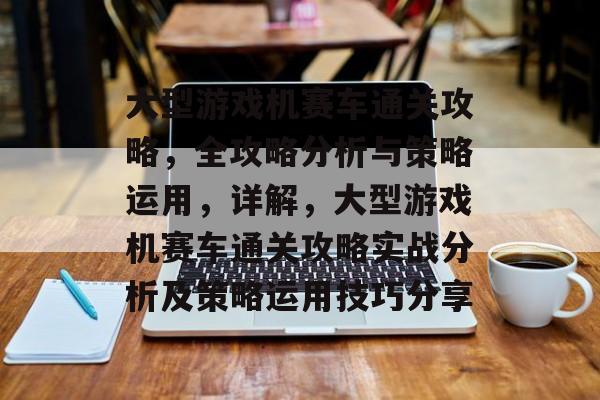 大型游戏机赛车通关攻
略，全攻略分析与策略
运用，详解，大型游戏
机赛车通关攻略实战分
析及策略运用技巧分享